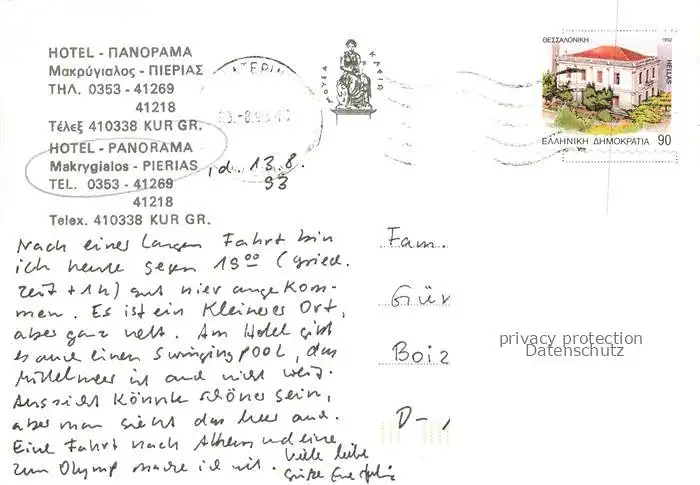 HOTEL - ΠΑΝΟΡΑΜΑ
Μακρύγιαλος - ΠΙΕΡΙΑΣ
ΤΗΛ. 0353 - 41269
41218
Τέλεξ 410338 KUR GR.
HOTEL - PANORAMA
Makrygialos - PIERIAS
TEL. 0353 - 41269
41218
Telex. 410338 KUR GR.
, d. 13.8.
93
ΜΟΥΣΑ ΚΛΕΙΩ
ΘΕΣΣΑΛΟΝΙΚΗ 1992
HELLAS
ΕΛΛΗΝΙΚΗ ΔΗΜΟΚΡΑΤΙΑ 90
Nach einer langen Fahrt bin
ich heute gegen 19⁰⁰ (griech.
Zeit + 1h) gut hier angekom-
men. Es ist ein kleinerer Ort,
aber ganz nett. Am Hotel gibt
es auch einen Swingingpool, das
Mittelmeer ist auch nicht weit.
Aussicht könnte schöner sein,
aber man sieht das Meer auch.
Eine Fahrt nach Athen und eine
zum Olymp mache ich mit.
Viele liebe
Grüße Eure
Fam.
Gür
Boiz
D-1
privacy protection
Datenschutz